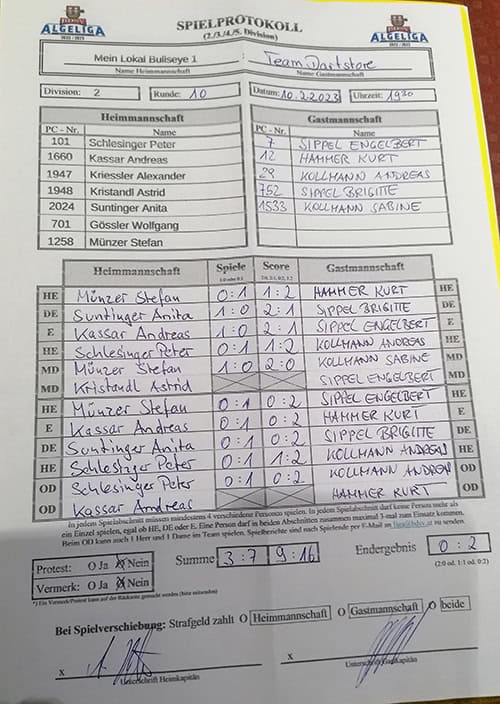 ALGELIGA
2022 / 2023
SPIELPROTOKOLL
(2./3./4./5. Division)
ALGELIGA
2022 / 2023
Mein Lokal Bullseye 1 : Team Dartstore
Name Heimmannschaft Name Gastmannschaft
Division: 2 Runde: 10 Datum: 10.2.2023 Uhrzeit: 19 30
Heimmannschaft Gastmannschaft
PC - Nr. Name PC - Nr. Name
101 Schlesinger Peter 7 SIPPEL ENGELBERT
1660 Kassar Andreas 12 HAMMER KURT
1947 Kriessler Alexander 29 KOLLMANN ANDREAS
1948 Kristandl Astrid 752 SIPPEL BRIGITTE
2024 Suntinger Anita 1533 KOLLMANN SABINE
701 Gössler Wolfgang
1258 Münzer Stefan
Heimmannschaft Spiele Score Gastmannschaft
1:0 oder 0:1 2:0, 2:1, 0:2, 1:2
HE Münzer Stefan 0:1 1:2 HAMMER KURT HE
DE Suntinger Anita 1:0 2:1 SIPPEL BRIGITTE DE
E Kassar Andreas 1:0 2:1 SIPPEL ENGELBERT E
HE Schlesinger Peter 0:1 1:2 KOLLMANN ANDREAS HE
MD Münzer Stefan 1:0 2:0 KOLLMANN SABINE MD
MD Kristandl Astrid SIPPEL ENGELBERT MD
HE Münzer Stefan 0:1 0:2 SIPPEL ENGELBERT HE
E Kassar Andreas 0:1 0:2 HAMMER KURT E
DE Suntinger Anita 0:1 0:2 SIPPEL BRIGITTE DE
HE Schlesinger Peter 0:1 1:2 KOLLMANN ANDREAS HE
OD Schlesinger Peter 0:1 0:2 KOLLMANN ANDREAS OD
OD Kassar Amdreas HAMMER KURT OD
In jedem Spielabschnitt müssen mindestens 4 verschiedene Personen spielen. In jedem Spielabschnitt darf keine Person mehr als
ein Einzel spielen, egal ob HE, DE oder E. Eine Person darf in beiden Abschnitten zusammen maximal 3-mal zum Einsatz kommen.
Beim OD kann auch 1 Herr und 1 Dame im Team spielen. Spielberichte sind nach Spielende per E-Mail an liga@bdsv.at zu senden.
Protest: O Ja O Nein Summe 3:7 9:16 Endergebnis 0:2
Vermerk: O Ja O Nein (2:0 od. 1:1 od. 0:2)
*) Ein Vermerk/Protest kann auf der Rückseite gemacht werden (bitte mitsenden)
Bei Spielverschiebung: Strafgeld zahlt O Heimmannschaft O Gastmannschaft O beide
x x
Unterschrift Heimkapitän Unterschrift Gastkapitän